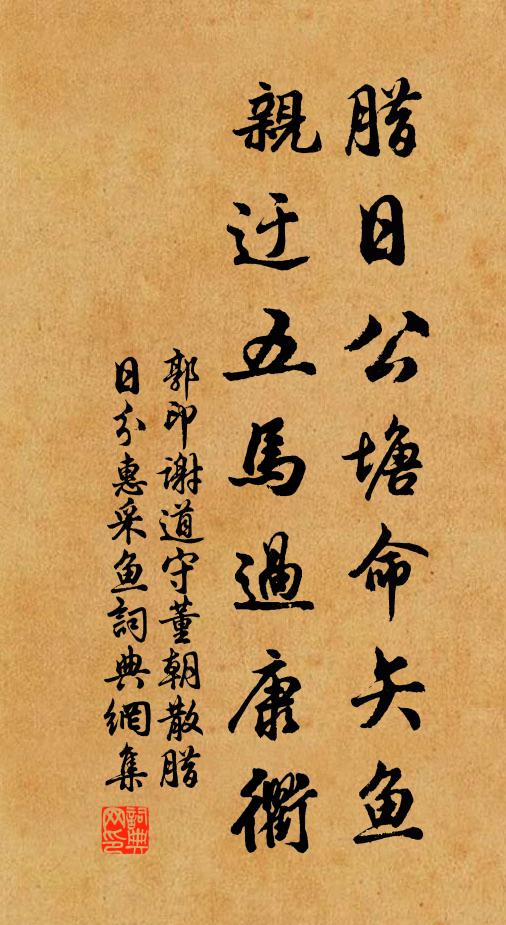 腊日公塘命矢鱼
親迂五馬過康衢
郭印谢道守董朝散腊
日分惠采鱼詞典網集
詞典网印